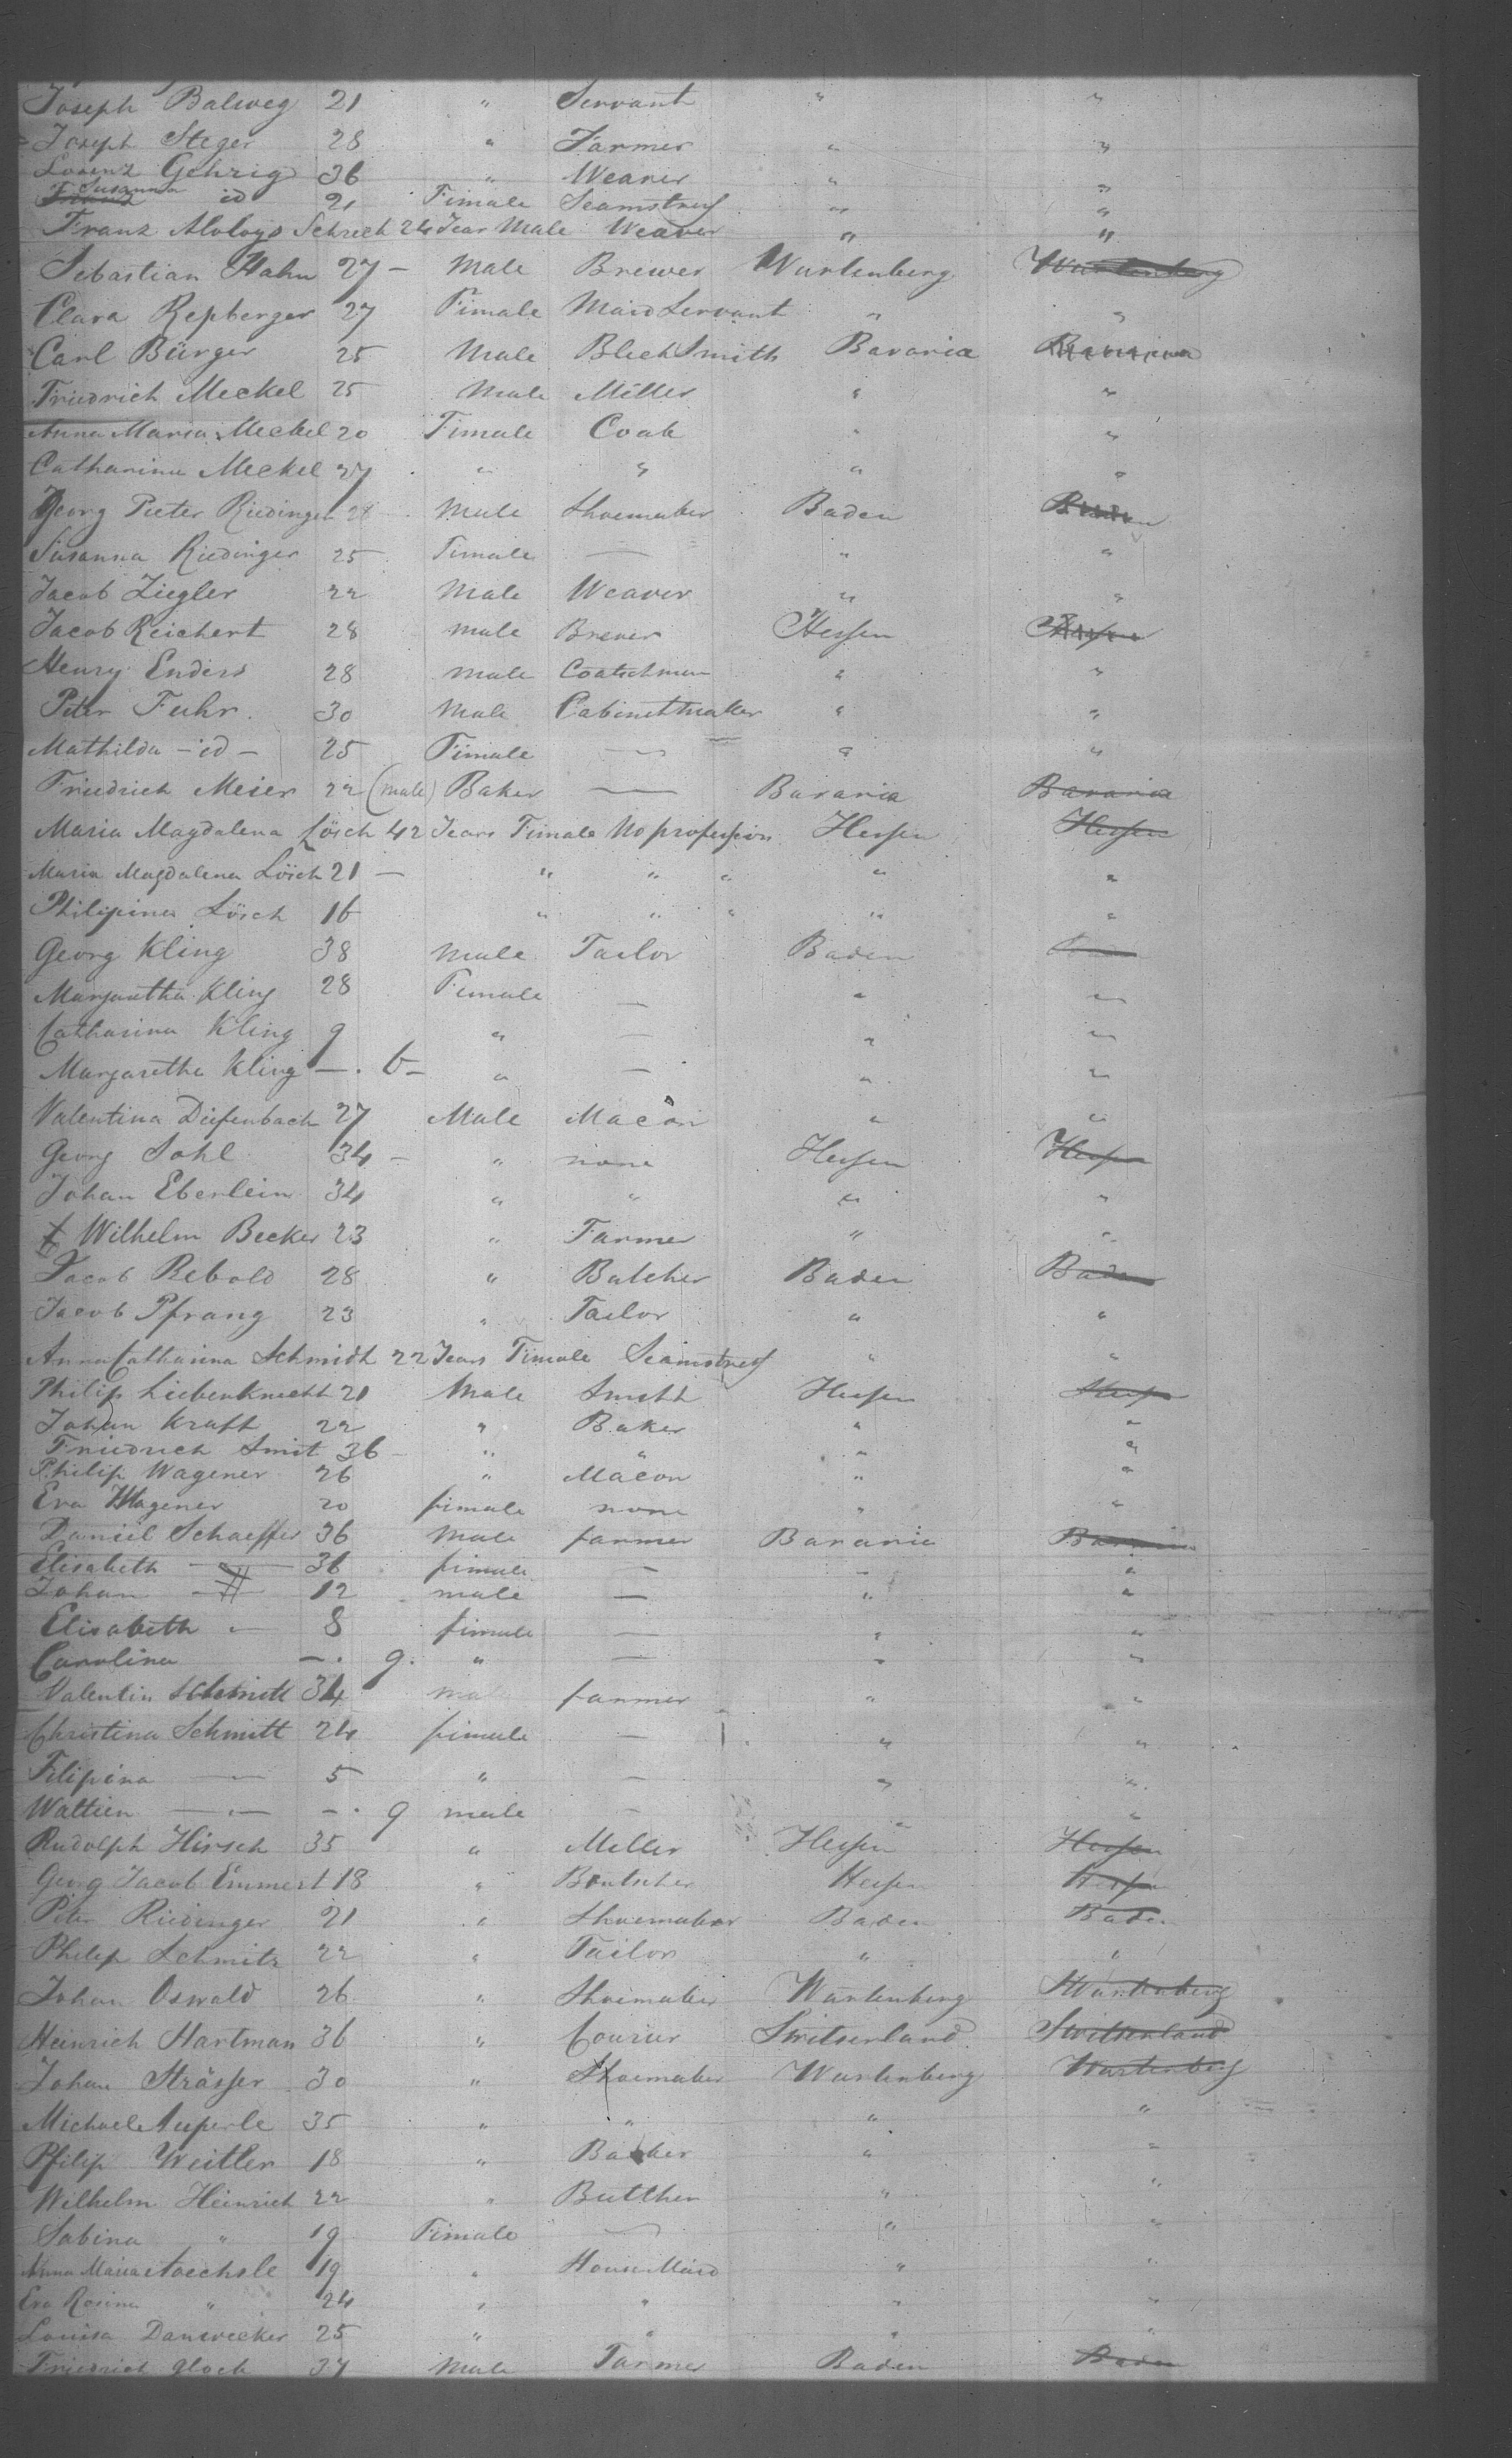 Joseph Balweg 21 " Servant " "
Joseph Steger 28 " Farmer " "
Lorenz Gehrig 36 " Weaver " "
Susanna id 21 Fimale Seamstress " "
Franz Aloloys Schrech 24 Jear Male Weaver " "
Sebastian Hahn 27 — Male Brewer Wurtenberg Wurtenberg
Clara Repberger 27 Fimale Maid Servant " "
Carl Bürger 25 Male Blech Smith Bavaria Bavaria
Friedrich Meckel 25 Male Miller " "
Anna Maria Meckel 20 Fimale Coak " "
Catharina Meckel 27 " " " "
Georg Pieter Riedinger 28 Male Shoemaker Baden Baden
Susanna Riedinger 25 Fimale — " "
Jacob Ziegler 22 Male Weaver " "
Jacob Reichert 28 male Brewer Hessen Hessen
Henry Enders 28 male Coatschman " "
Peter Fuhr. 30 Male Cabinetmaker " "
Mathilda — id — 25 Fimale — " "
Friedrich Meier 22 (male) Baker — Bavaria Bavaria
Maria Magdalena Lösch 42 Jears Fimale No profession Hessen Hessen
Maria Magdalena Lösch 21 — " " " " "
Philipina Lösch 16 " " " " "
Georg Kling 38 Male Tailor Baden
Margaretha Kling 28 Fimale — " "
Catharina Kling 9 " — " "
Margaretha Kling — . 6 — " — " "
Valentina Diefenbach 27 Male Macon " "
Georg Sohl 34 — " none Hessen Hessen
Johan Eberlein 34 " " " "
Wilhelm Becker 23 " Farmer " "
Jacob Rebold 28 " Butcher Baden Baden
Jacob Pfrang 23 " Tailor " "
Anna Catharina Schmidt 22 Jears Fimale Seamstress " "
Philip Liebenknecht 21 Male Smith Hessen Hessen
Johan Kraft 22 " Baker " "
Friedrich Smit 36 — " " " "
Philip Wagener 26 " Macon " "
Eva Wagener 20 fimale none " "
Daniel Schaeffer 36 Male farmer Bavaria Bavaria
Elisabeth — 36 fimale — " "
Johan — 12 male — " "
Elisabeth — 8 fimale — " "
Carolina — . 9. " — " "
Valentin Schmitt 34 male farmer " "
Christina Schmitt 24 fimale — " "
Filipina — 5 " — " "
Waltien — — . 9 male — " "
Rudolph Hirsch 35 " Miller Hessen Hessen
Georg Jacob Emmert 18 " Hessen Hessen
Peter Riedinger 21 " Shoemaker Baden Baden
Philip Schmitz 22 " Tailor " "
Johan Oswald 26 " Shoemaker Wurtenberg Wurtenberg
Heinrich Hartman 36 " Courier Switserland Switserland
Johan Strässer 30 " Shoemaker Wurtenberg Wurtenberg
Michael Auperle 35 " " " "
Pfilip Weitler 18 " Backer " "
Wilhelm Heinrich 22 " Butther " "
Sabina " 19 Fimale — " "
Anna Maria 19 " House Maid " "
Eva Rosina " 24 " " " "
Louisa Danwecker 25 " " " "
Friedrich Gloch 37 Male Farmer Baden Baden